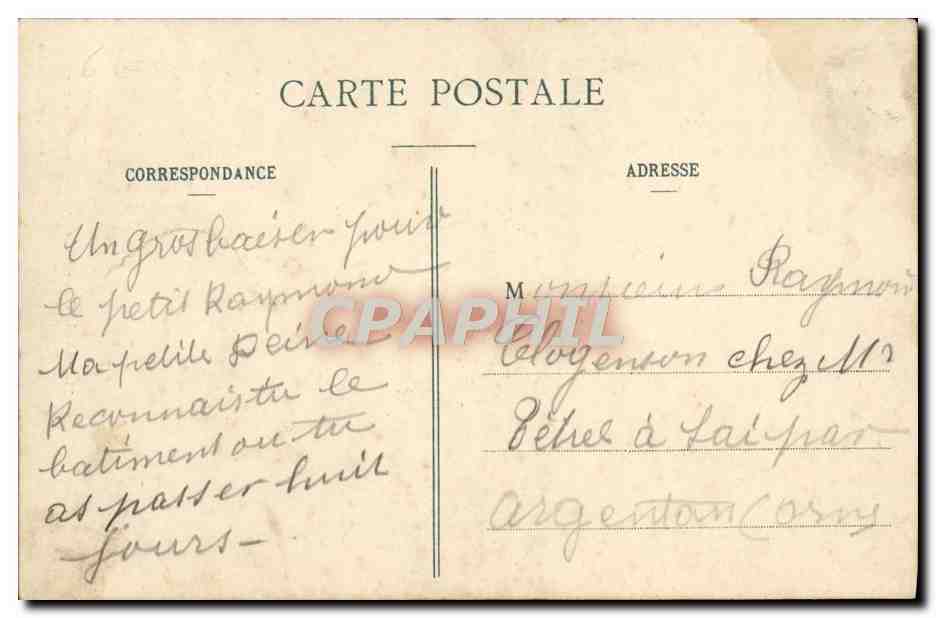 CARTE POSTALE
CORRESPONDANCE
Un gros baiser pour
le petit Raymond
Ma petite Reine
Reconnaistu le
batiment ou tu
as passer huit
jours -
ADRESSE
Monsieur Raymond
Clogenson chez Mr
à Sai par
Argentan (Orne
CPAPHIL